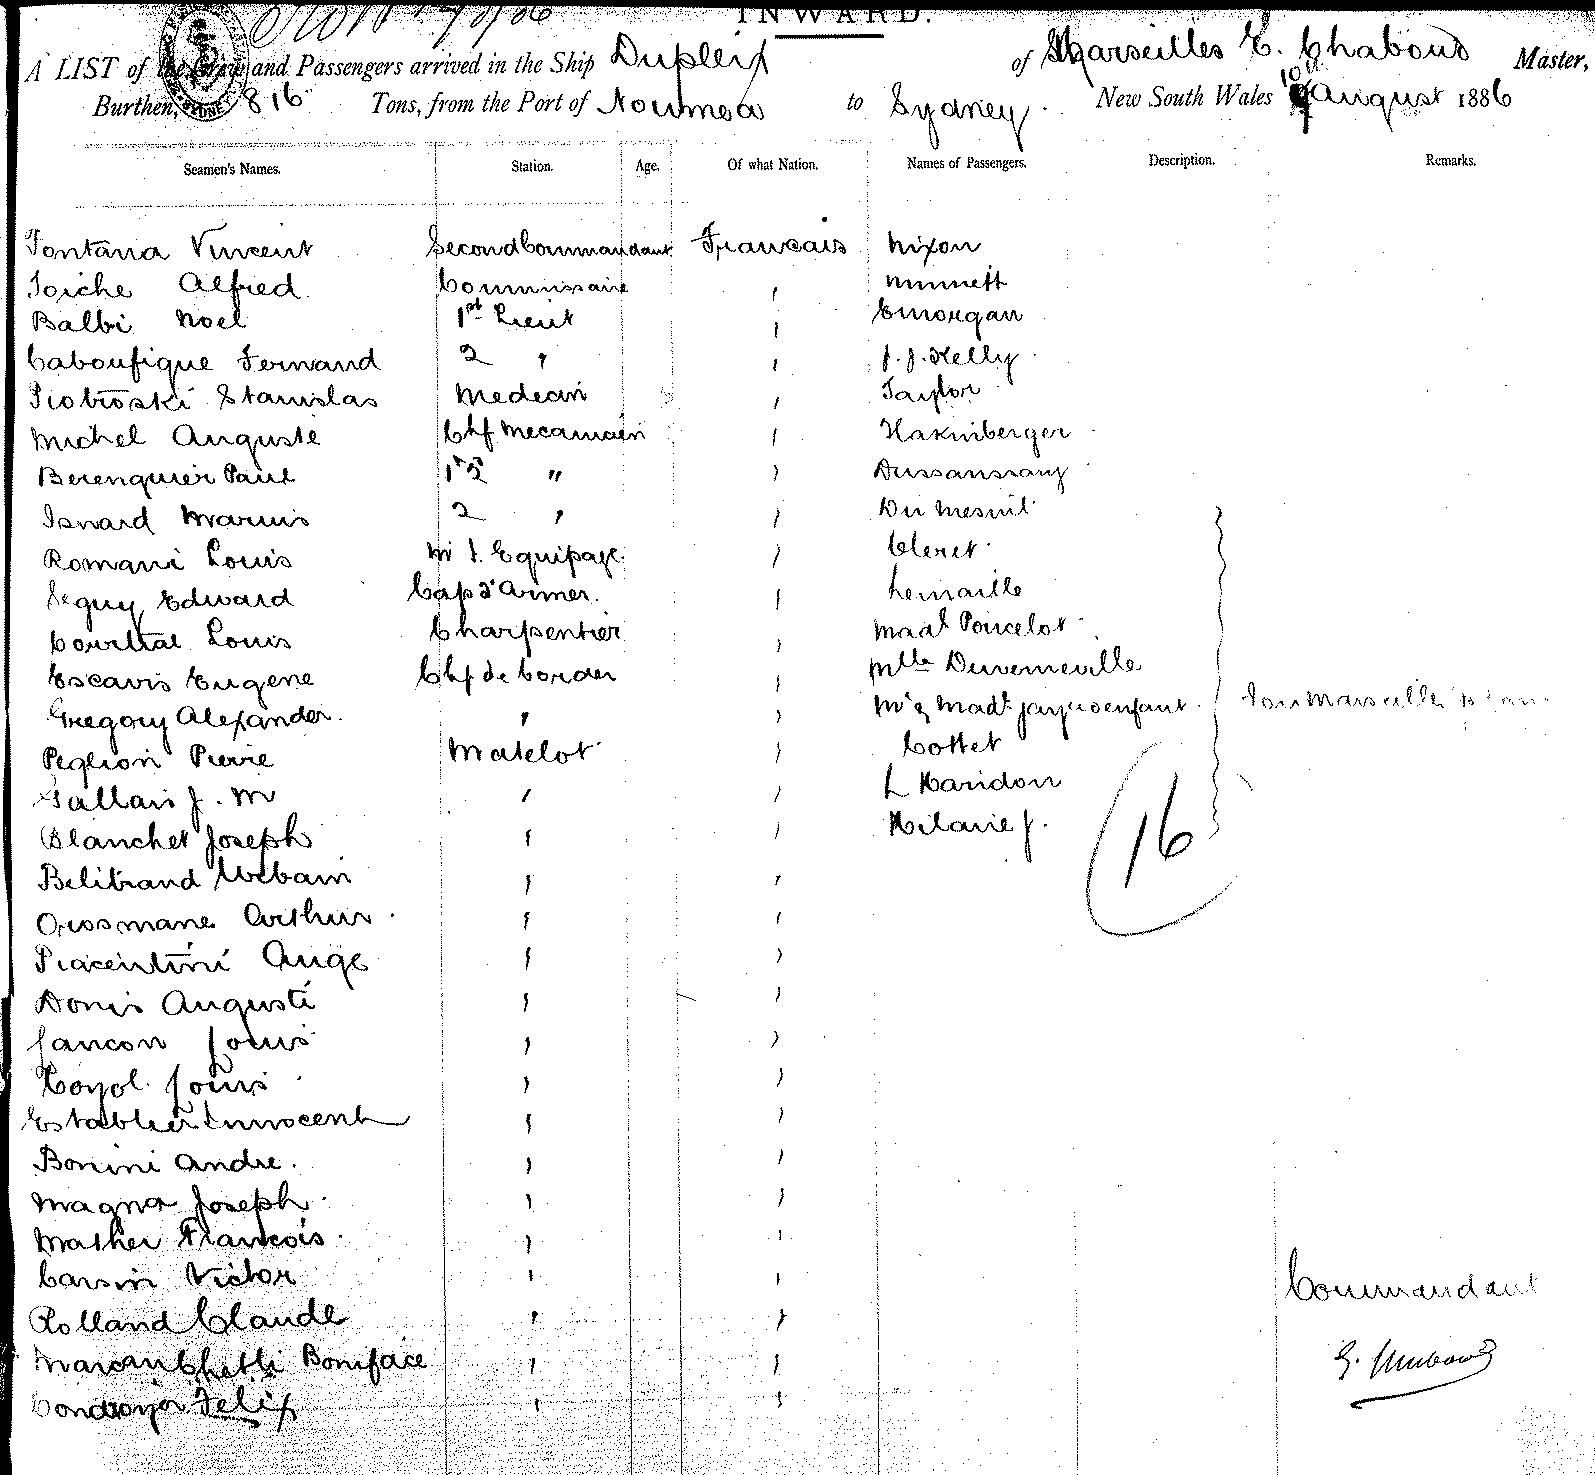 INWARD.
A LIST of the Crew and Passengers arrived in the Ship Dupleix of Marseilles E. Chabaud Master,
Burthen, 816 Tons, from the Port of Noumea to Sydney. New South Wales 10 August 1886
Seamen's Names. Station. Age. Of what Nation. Names of Passengers. Description. Remarks.
Fontana Vincent Second Commandant Francais Nixon
Toiche Alfred Commissaire ' Minnett
Balbi Noel 1st Lieut ' E Morgan
Caboufigue Fernand 2 " ' J. J. Kelly
Piotroski Stanislas Medecin ' Taylor
Michel Auguste Chf Mecanicien '
Berenguier Paul " '
Isnard Marius 2 " ' Du Mesnil
Romani Louis Equipage ' Cleret
Seguy Edward Cap d'Armes. ' Lemaille
Courtial Louis Charpentier ' Madl Poircelot
Escavis Eugene Chf de ' Mlle Duverneville
Gregory Alexander. " ' Mr & Mad
Peglion Pierre Matelot ' Cottet
Gallais J. M ' ' L Haridon
Blanchet Joseph ' ' Hilarie J.
16
Belitrand Urbain ' '
Orosmane Arthur ' '
Piacentini Ange ' '
Donis Auguste ' '
Jancon Louis ' '
Coyol Louis ' '
Establier Innocent ' '
Bonini Andre. ' '
Magna Joseph ' '
Mather Francois ' '
Carsin Victor ' ' Commandant
Rolland Claude ' '
Boniface ' '
Felix ' '